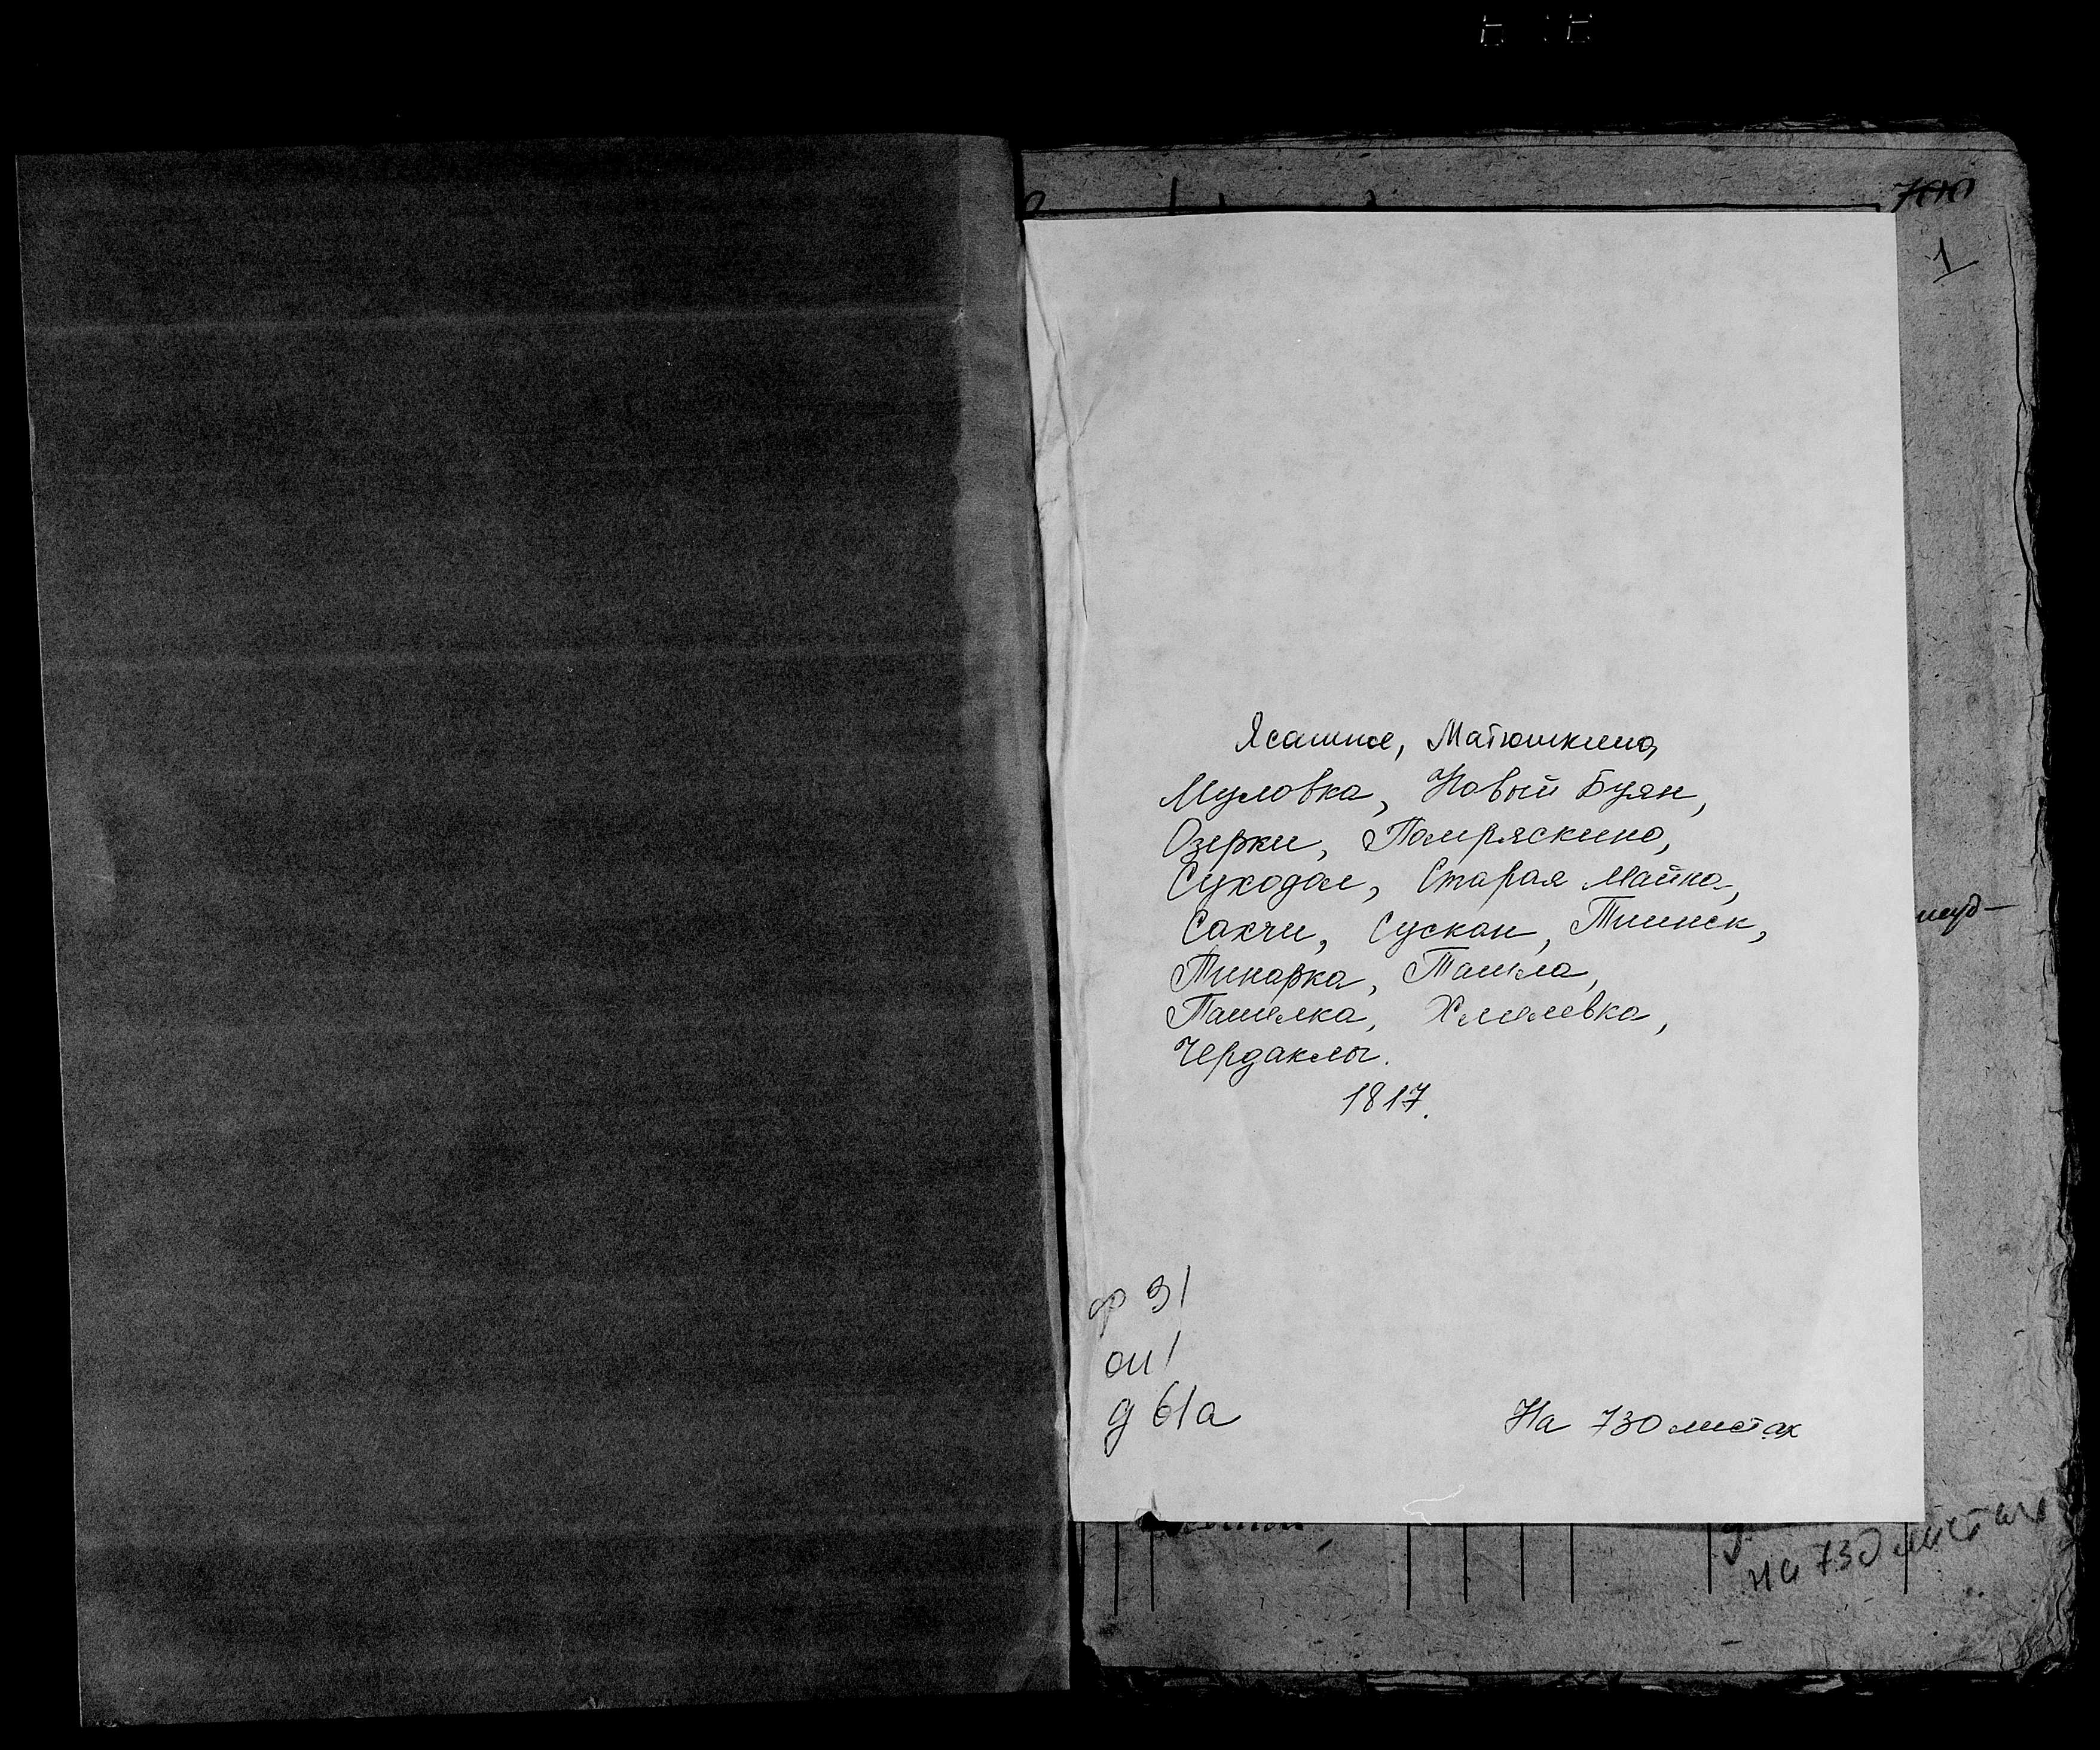 1
Ясашное, Матюшкино,
Муловка, Новый Буян,
Озерки, Помряскино,
Суходол, Старая Майна,
Сахчи, Сускан, Тиинск,
Тинарка, Ташла,
Ташелка, Хмелевка,
Чердаклы.
1817.
ф 31
оп 1
д 61а
На 730 листах
на 730 листах